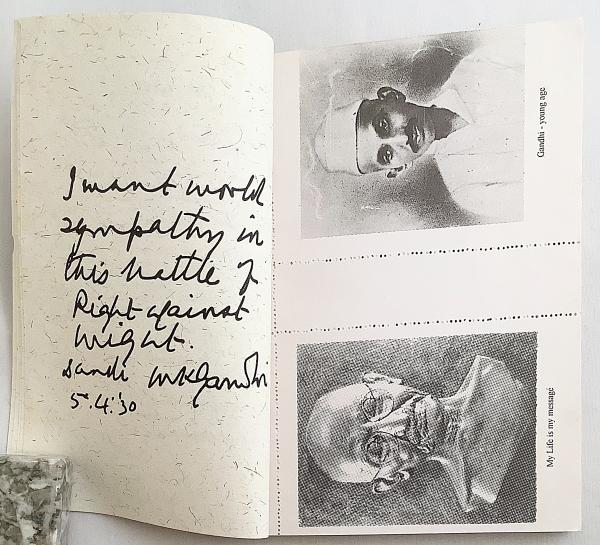 I want world
sympathy in
this battle of
Right against
might.
Dandi MKGandhi
5.4.'30
Gandhi - young age
My Life is my message